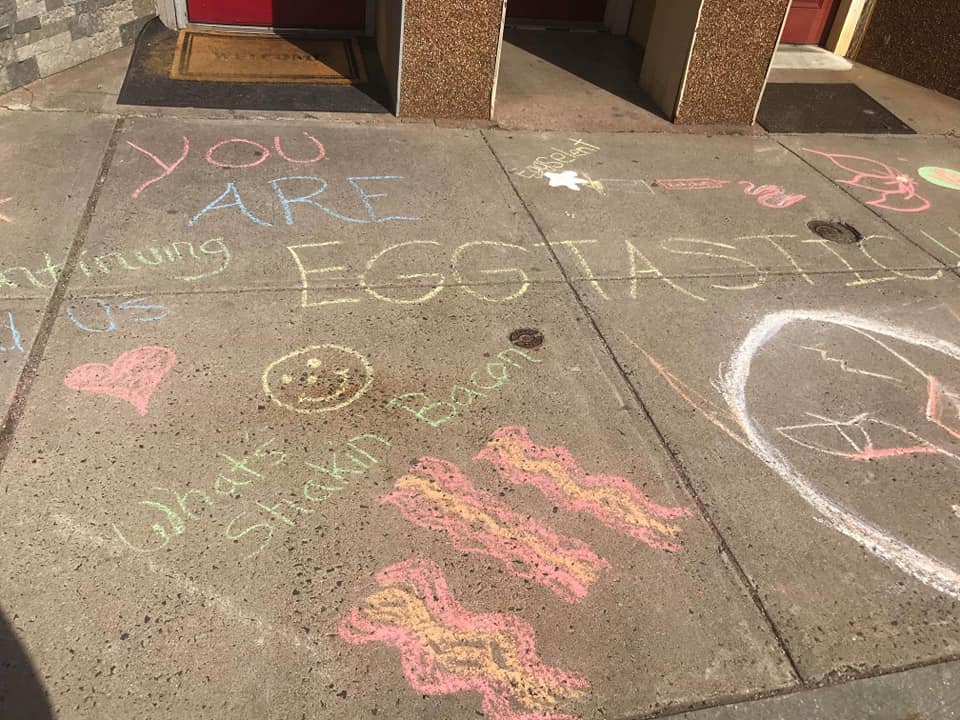 WELCOME
YOU
ARE
EGGTASTIC!
ntinuing
us
What's
Shakin Bacon